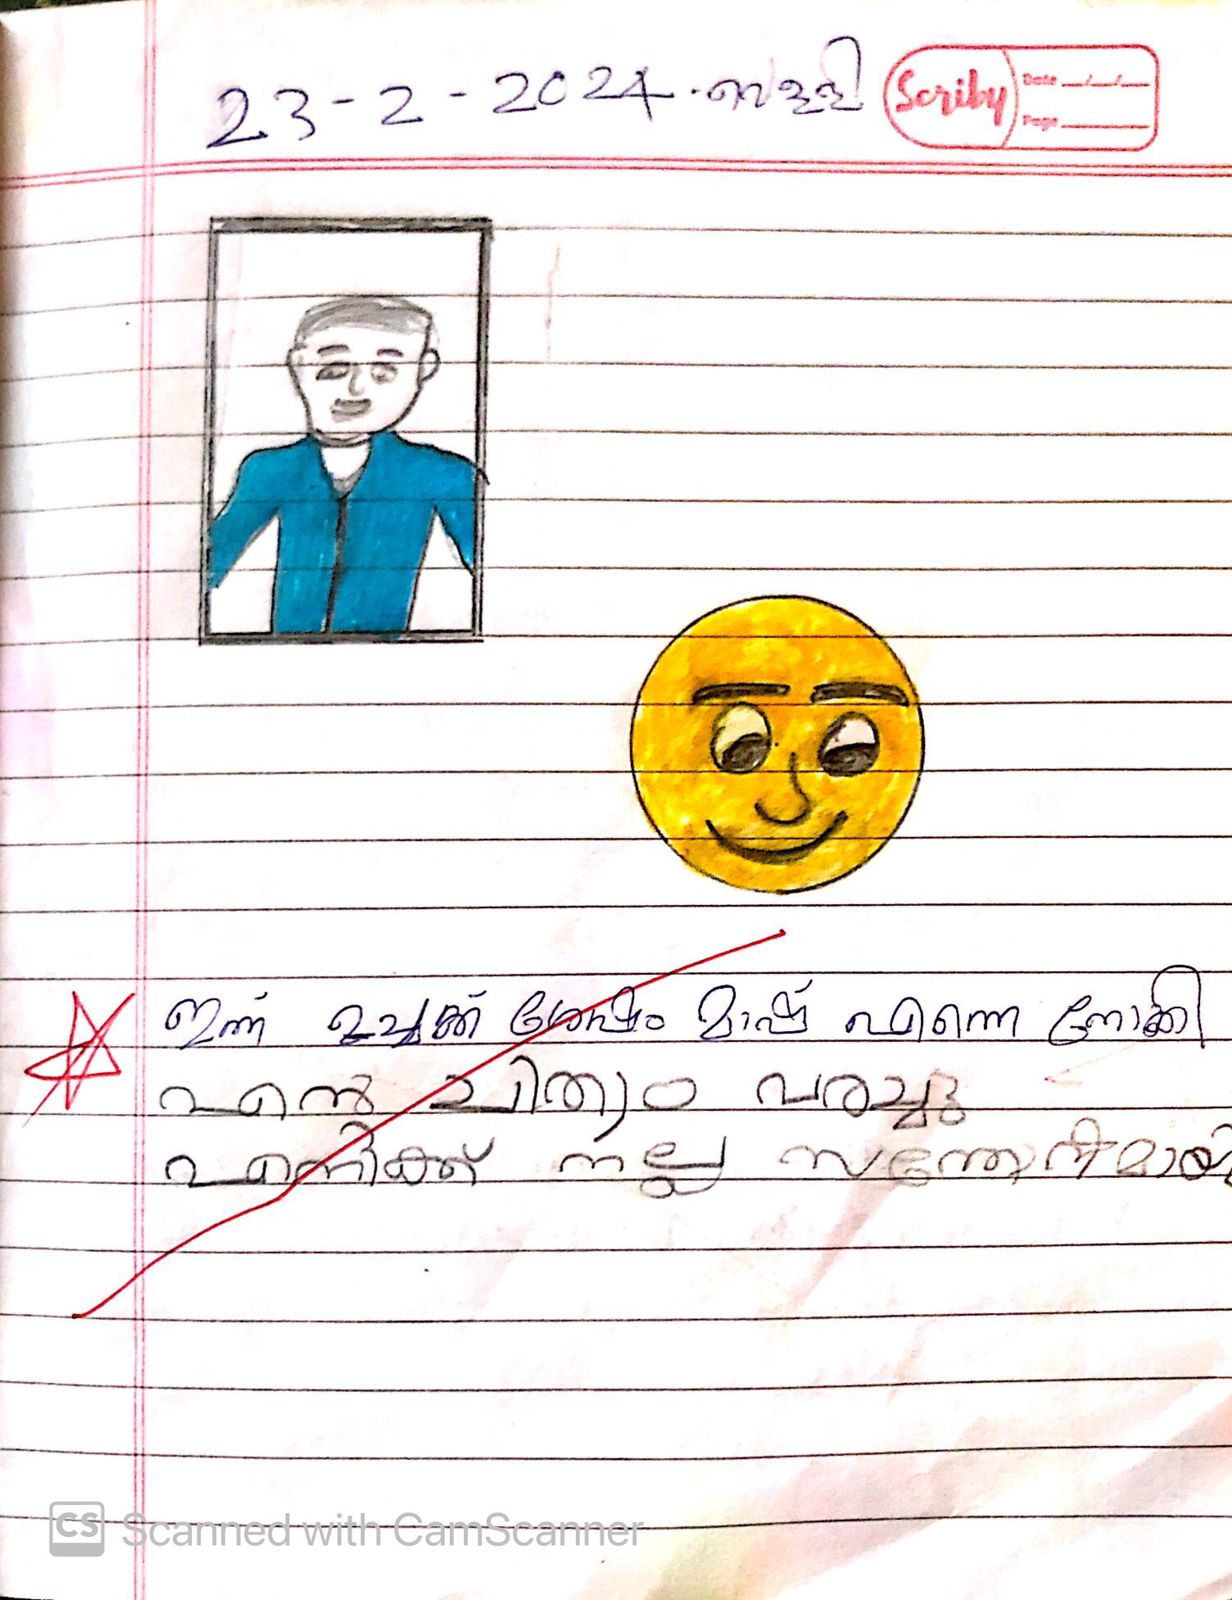 23-2-2024. വെള്ളി
Scriby
Date __/__/__
Page ______
ഇന്ന് ഉച്ചക്ക് ശേഷം മാഷ് എന്നെ നോക്കി
എന്റെ ചിത്രം വരച്ചു
എനിക്ക് നല്ല സന്തോഷമായി
CS Scanned with CamScanner